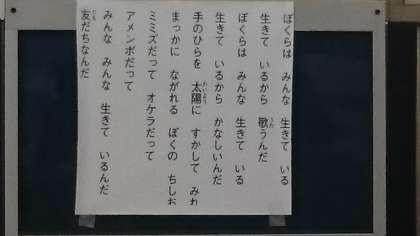 ぼくらは みんな 生きて いる
生きて いるから 歌うんだ
ぼくらは みんな 生きて いる
生きて いるから かなしいんだ
手のひらを 太陽に すかして みれ
まっかに ながれる ぼくの ちしお
ミミズだって オケラだって
アメンボだって
みんな みんな 生きて いるんだ
友だちなんだ